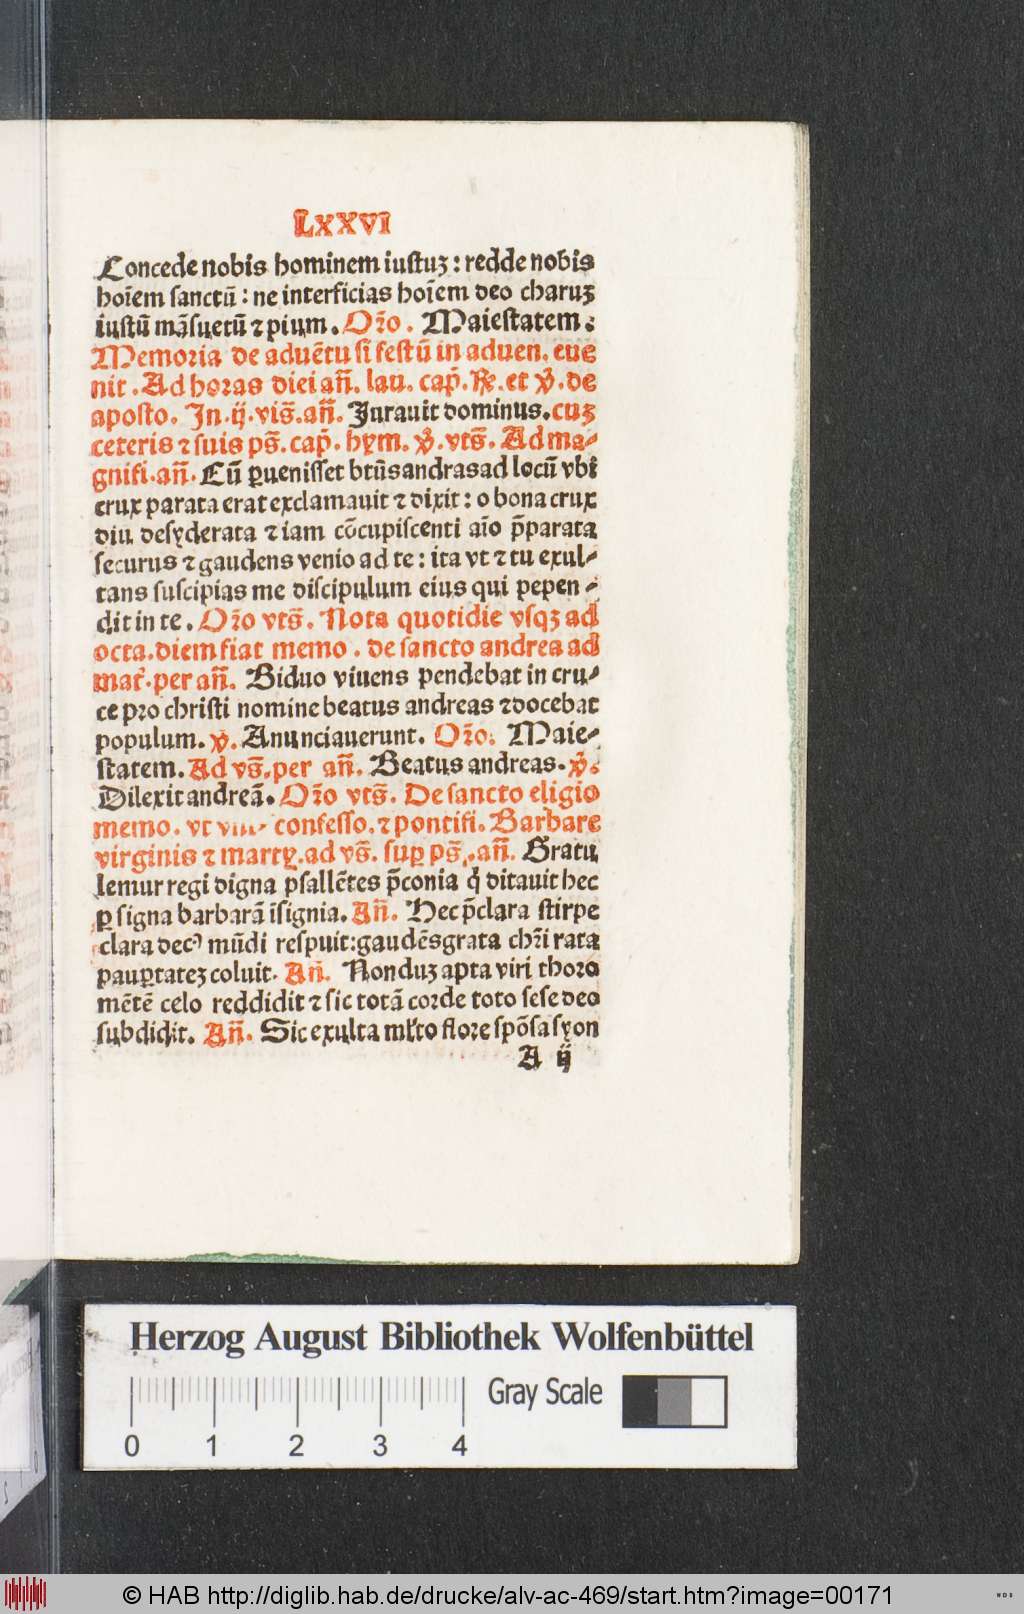 LXXVI
Concede nobis hominem iustuꝫ : redde nobis
hoīem sanctū : ne interficias hoīem deo charuꝫ
iustū māsuetū ⁊ pium. Oꝛ̄o. Maiestatem.
Memoria de aduētu si festū in aduen. eue
nit. Ad horas diei añ. lau. cap̄. ℞. et ℣. de
aposto. In .ij. vis̄. añ. Iurauit dominus. cuꝫ
ceteris ⁊ suis ps̄. cap̄. hym. ℣. vts̄. Ad ma-
gnifi. añ. Cū ꝑuenisset btūs andras ad locū vbi
crux parata erat exclamauit ⁊ dixit : o bona crux
diu desyderata ⁊ iam cōcupiscenti aīo p̄parata
securus ⁊ gaudens venio ad te : ita vt ⁊ tu exul-
tans suscipias me discipulum eius qui pepen-
dit in te. Oꝛ̄o vts̄. Nota quotidie vsqꝫ ad
octa. diem fiat memo. de sancto andrea ad
mat̄. per añ. Biduo viuens pendebat in cru-
ce pꝛo christi nomine beatus andreas ⁊ docebat
populum. ℣. Anunciauerunt. Oꝛ̄o. Maie-
statem. Ad vs̄. per añ. Beatus andreas. ℣.
Dilexit andreā. Oꝛ̄o vts̄. De sancto eligio
memo. vt confesso. ⁊ pontifi. Barbare
virginis ⁊ marty. ad vs̄. suꝑ ps̄. añ. Gratu
lemur regi digna psallētes p̄conia q̇ ditauit hec
ꝑ signa barbarā īsignia. Añ. Hec p̄clara stirpe
clara decꝰ mūdi respuit: gaudēs grata chꝛ̄i rata
pauꝑtateꝫ coluit. Añ. Nonduꝫ apta viri thoro
mētē celo reddidit ⁊ sic totā coꝛde toto sese deo
subdidit. Añ. Sic exulta ml̄to floꝛe spōsa syon
A ij
Herzog August Bibliothek Wolfenbüttel
0 1 2 3 4
Gray Scale
© HAB http://diglib.hab.de/drucke/alv-ac-469/start.htm?image=00171